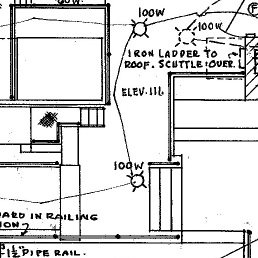 100W
100W
IRON LADDER TO
ROOF. SCUTTLE OVER.
ELEV. 111
100W
IN RAILING
1½" PIPE RAIL.